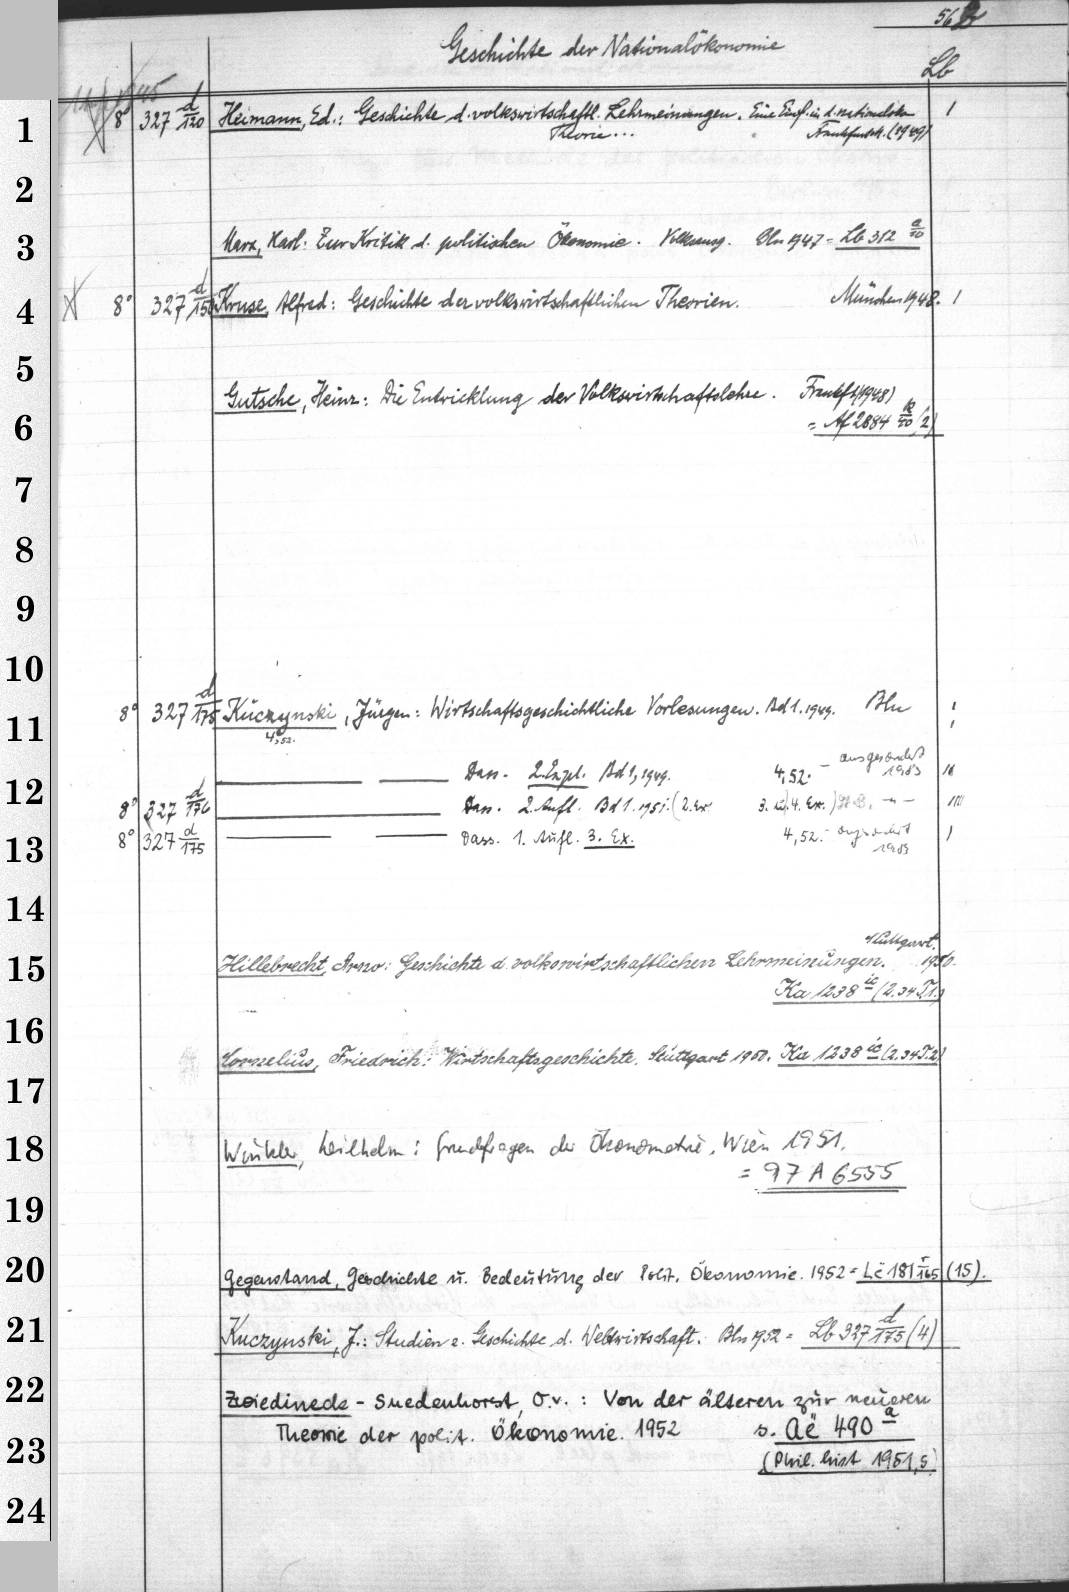 56
Geschichte der Nationalökonomie
Lb
1 8° 327 d/120 Heimann, Ed.: Geschichte d. volkswirtschaftl. Lehrmeinungen. Eine Einf. in d. nationalök. 1
Theorie... Frankfurt. (1949)
2
3 Marx, Karl: Zur Kritik d. politischen Ökonomie. Volksausg. Bln 1947 = Lb 312 a/90
4 8° 327 d/150 Kruse, Alfred: Geschichte der volkswirtschaftlichen Theorien. München 1948. 1
5
Gutsche, Heinz: Die Entwicklung der Volkswirtschaftslehre. Frankf. (1948)
6 = Af 2884 k/20 (2)
7
8
9
10
11 8° 327 d/175 Kuczynski, Jürgen: Wirtschaftsgeschichtliche Vorlesungen. Bd 1. 1949. Bln 1
4,52.
Dass. 2. Expl. Bd 1, 1949. 4,52. – ausgesondert 1983
12 8° 327 d/176 Dass. 2. Aufl. Bd 1. 1951. (2. Ex 3. u. 4. Ex.)
13 8° 327 d/175 Dass. 1. Aufl. 3. Ex. 4,52. – ausgesondert 1983 1
14
Stuttgart.
15 Hillebrecht, Arno: Geschichte d. volkswirtschaftlichen Lehrmeinungen. 1950.
Ka 1238 ic (2.34 T.1.)
16 Cornelius, Friedrich: Wirtschaftsgeschichte. Stuttgart 1950. Ka 1238 ic (2.34 T.2)
17
18 Winkler, Wilhelm: Grundfragen der Ökonometrie. Wien 1951.
= 97 A 6555
19
20 Gegenstand, Geschichte u. Bedeutung der Polit. Ökonomie. 1952 = Lč 181 r/165 (15).
21 Kuczynski, J.: Studien z. Geschichte d. Weltwirtschaft. Bln 1952 = Lb 327 d/175 (4)
22 Zwiedineck-Suedenhorst, O.v.: Von der älteren zur neueren
Theorie der polit. Ökonomie. 1952 s. Aë 490 a
23 (Phil. hist 1951,5)
24